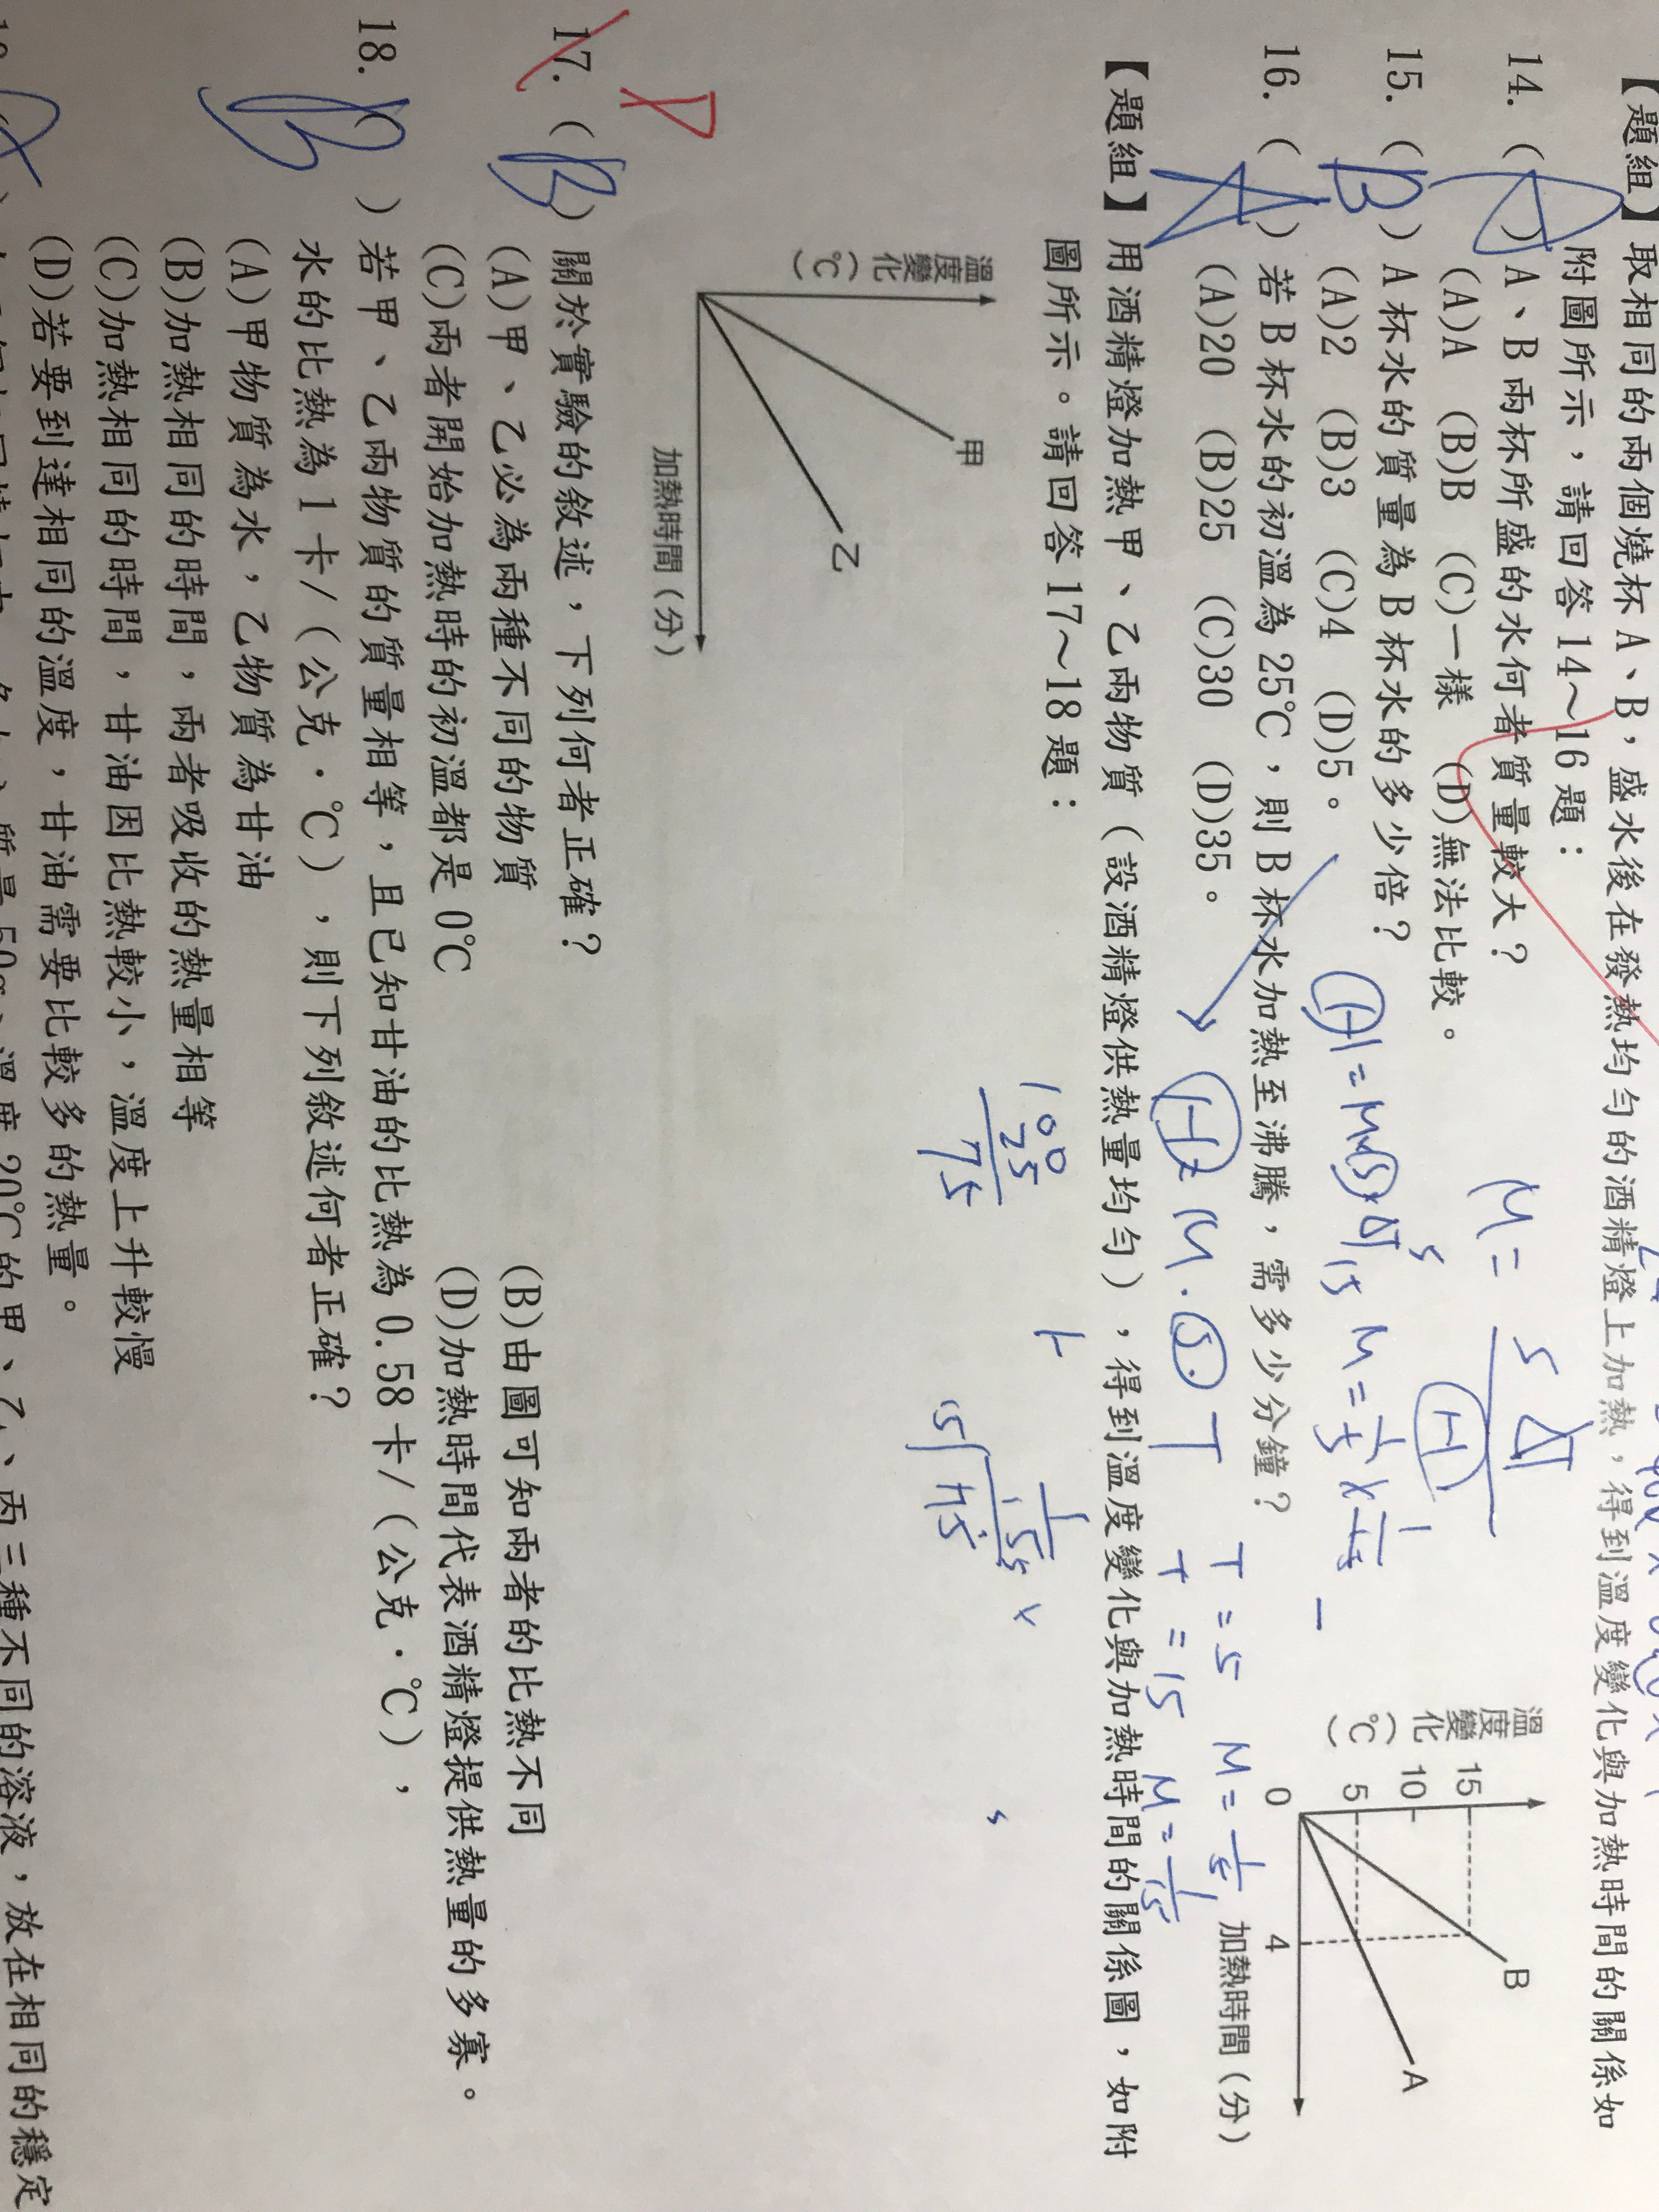 【題組】取相同的兩個燒杯A、B，盛水後在發熱均勻的酒精燈上加熱，得到溫度變化與加熱時間的關係如
附圖所示，請回答14～16題：
14. ( )A、B兩杯所盛的水何者質量較大？
(A)A (B)B (C)一樣 (D)無法比較。
15. (B)A杯水的質量為B杯水的多少倍？
(A)2 (B)3 (C)4 (D)5。
16. (A)若B杯水的初溫為25℃，則B杯水加熱至沸騰，需多少分鐘？
(A)20 (B)25 (C)30 (D)35。
溫度變化(℃)
15
10
5
0
4
B
A
加熱時間(分)
M=
S ΔT
H
H=M×S×ΔT
5
15
M=1/5×1/15
H=M.S.T
T=5 M=1/5
T=15 M=1/15
100
25
75
15
【題組】用酒精燈加熱甲、乙兩物質（設酒精燈供熱量均勻），得到溫度變化與加熱時間的關係圖，如附
圖所示。請回答17～18題：
溫度變化(℃)
甲
乙
加熱時間(分)
D
17. (B)關於實驗的敘述，下列何者正確？
(A)甲、乙必為兩種不同的物質 (B)由圖可知兩者的比熱不同
(C)兩者開始加熱時的初溫都是0℃ (D)加熱時間代表酒精燈提供熱量的多寡。
18. (B)若甲、乙兩物質的質量相等，且已知甘油的比熱為0.58卡/(公克·℃)，
水的比熱為1卡/(公克·℃)，則下列敘述何者正確？
(A)甲物質為水，乙物質為甘油
(B)加熱相同的時間，兩者吸收的熱量相等
(C)加熱相同的時間，甘油因比熱較小，溫度上升較慢
(D)若要到達相同的溫度，甘油需要比較多的熱量。
質量50g、溫度20℃的甲、乙、丙三種不同的溶液，放在相同的穩定